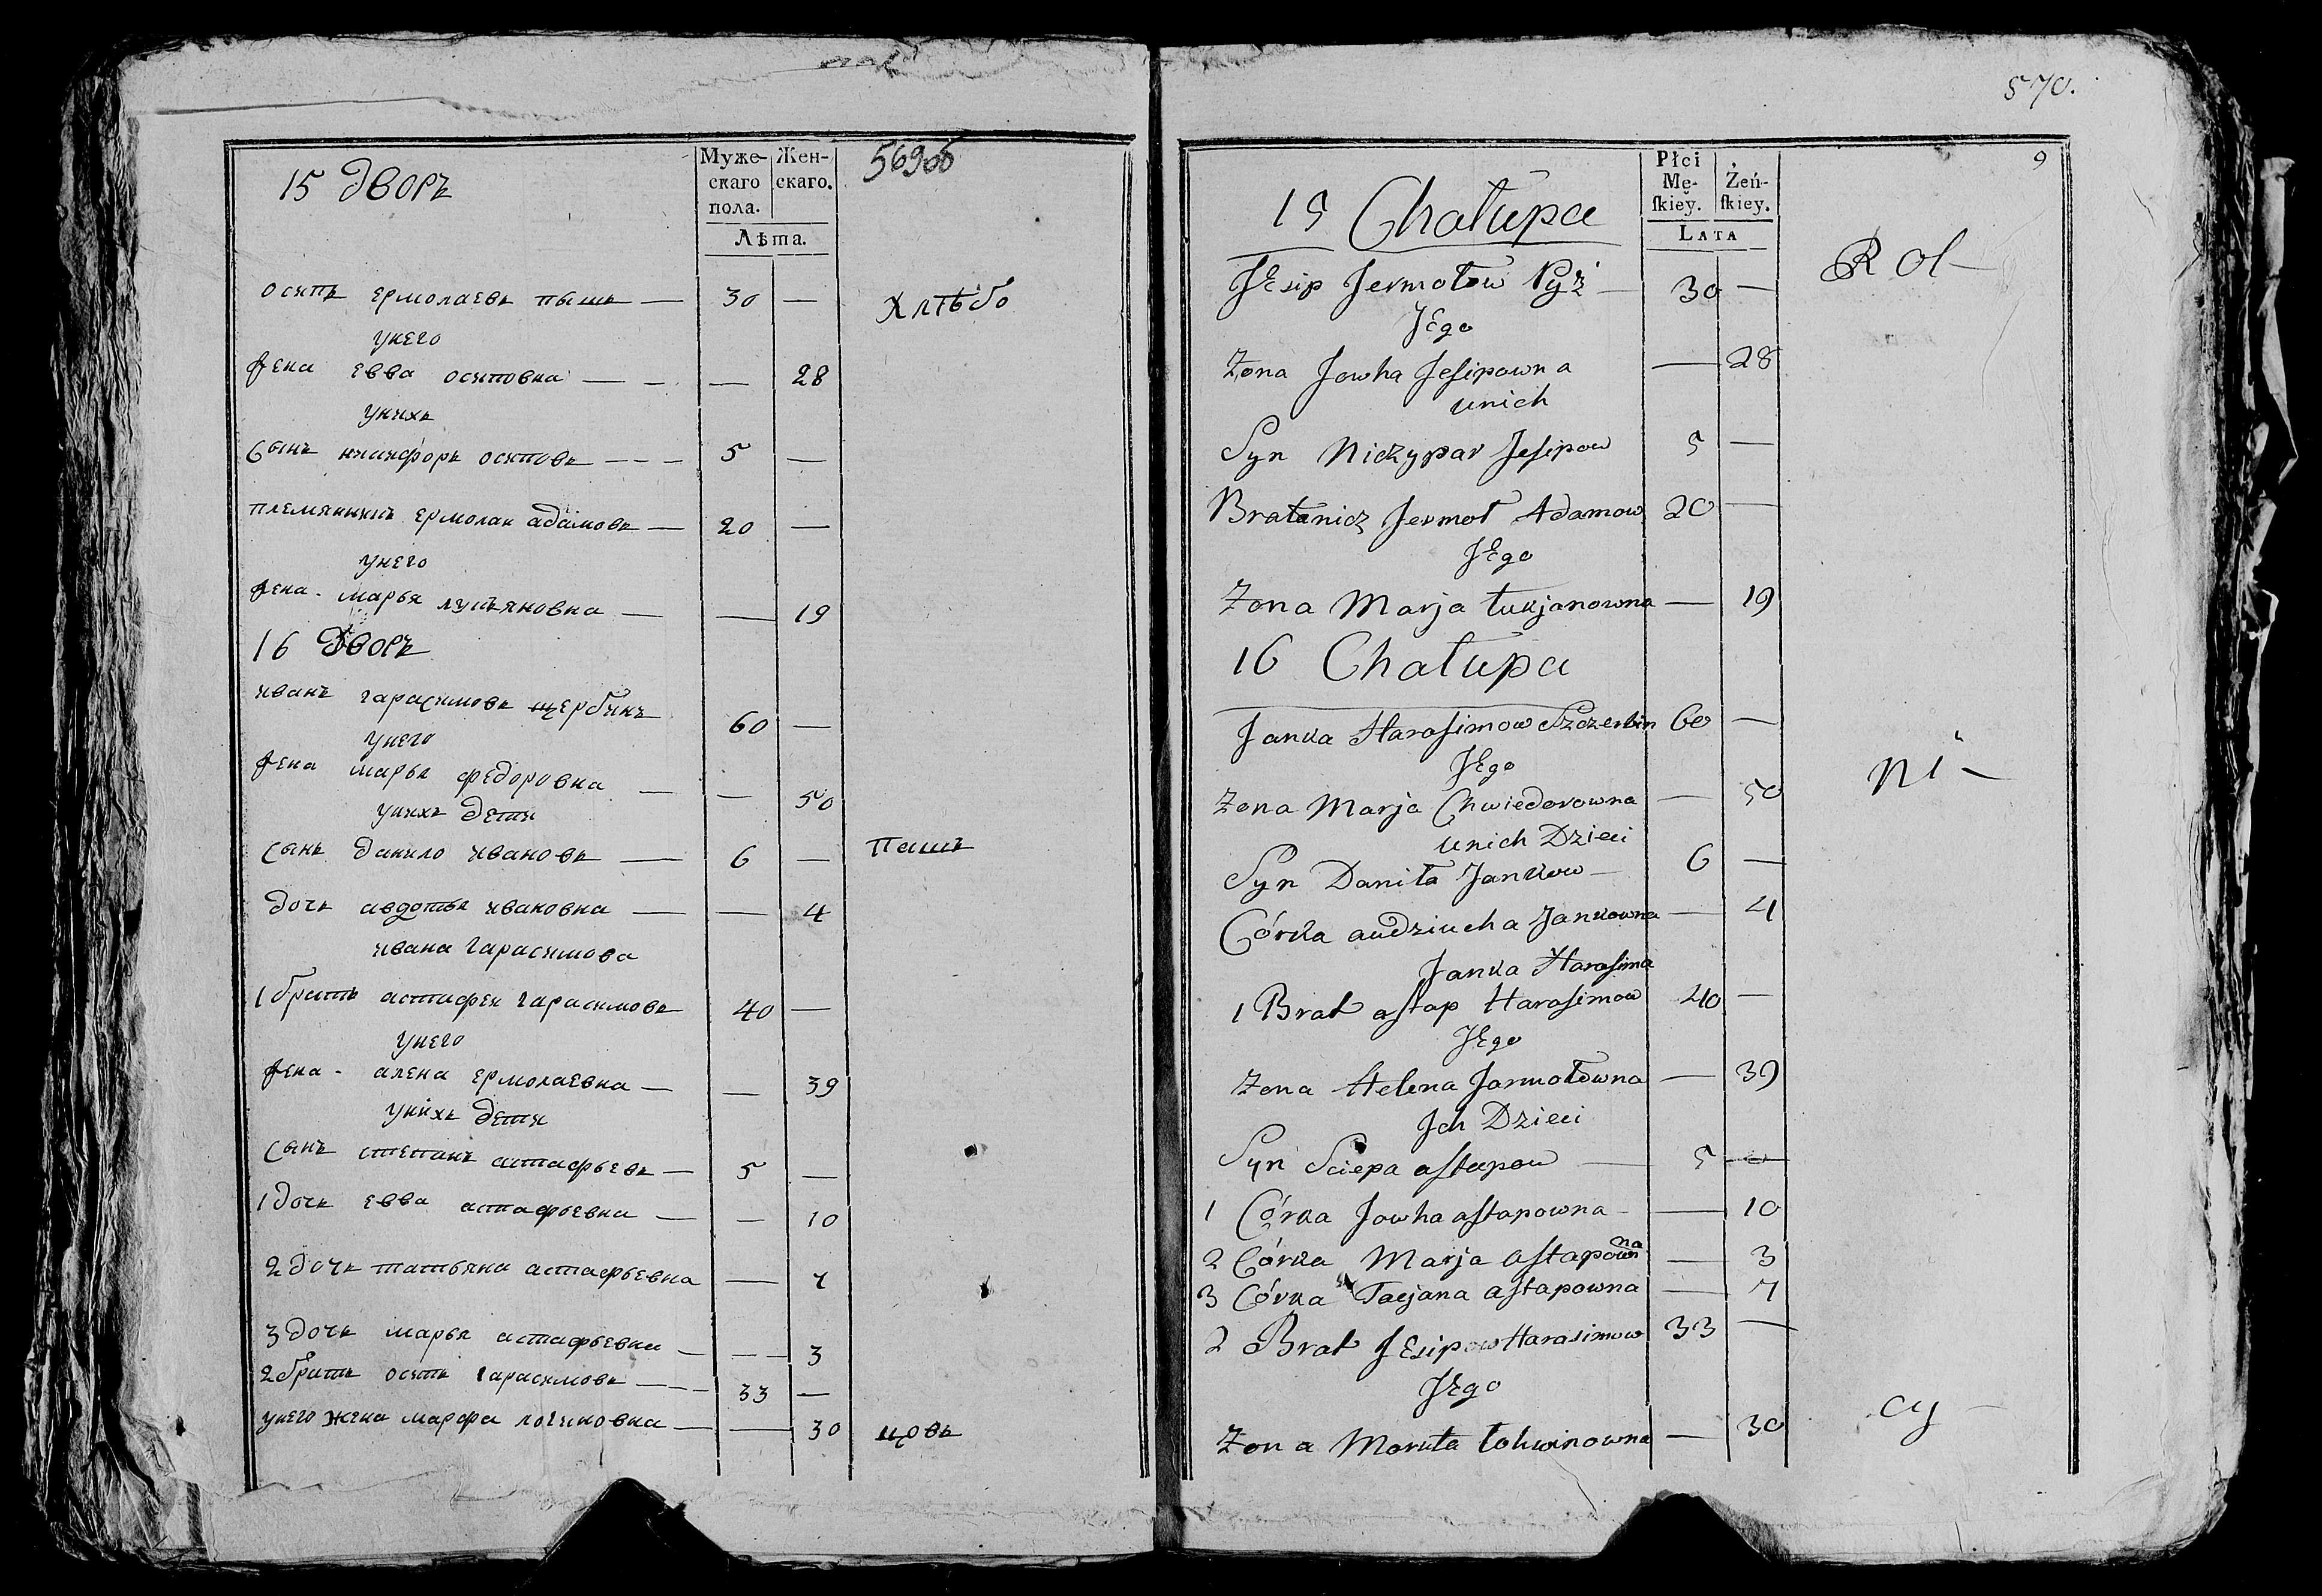 569об
15 дворъ
Муже-
скаго
пола.
Жен-
скаго.
Лѣта.
осипъ ермолаевъ пышъ — 30 —
унего
жена евва осиповна — — — 28
унихъ
сынъ никифоръ осиповъ — — — 5 —
племянникъ ермолаи адамовъ — 20 —
унего
жена марья лукьяновна — — 19
16 дворъ
иванъ гарасимовъ щербинъ 60 —
унего
жена марья федоровна — — 50
унихъ дети
сынъ данило ивановъ — 6 —
дочь авдотья ивановна — — 4
ивана гарасимова
1 братъ астафеи гарасимовъ 40 —
унего
жена алена ермолаевна — — 39
унихъ дети
сынъ степанъ астафьевъ — 5 —
1 дочь евва астафьевна — — 10
2 дочь татьяна астафьевна —
3 дочь марья астафьевна — — — 3
2 братъ осипъ гарасимовъ — — — 33 —
унего жена марфа логиновна — — 30
хлѣбо
пашъ
цовъ
570.
9
15 Chałupa
Płci
Mę-
ſkiey.
Żeń-
ſkiey.
LATA
Jesip Jermołow Pyż — 30 —
Jego
Zona Jowha Jesipowna — 28
unich
Syn Niczypar Jesipow 5 —
Bratanicz Jermoł Adamow 20 —
Jego
Zona Marja Łukjanowna — 19
16 Chałupa
Janka Harasimow Szczerbin 60 —
Jego
Zona Marja Chwiedorowna — 50
unich Dzieci
Syn Daniła Jankow — 6 —
Córka audziucha Jankowna — 4
Janka Harasima
1 Brat astap Harasimow 40 —
Jego
Zona Helena Jarmołowna — 39
Ich Dzieci
Syn Sciepa astapow — 5 —
1 Córka Jowha astapowna — — 10
2 Córka Marja astapowna — 3
3 Córka Tacjana astapowna — 7
2 Brat Jesipow Harasimow 33 —
Jego
Zona Maruta Łohwinowna — 30
Rol—
ni—
cy—